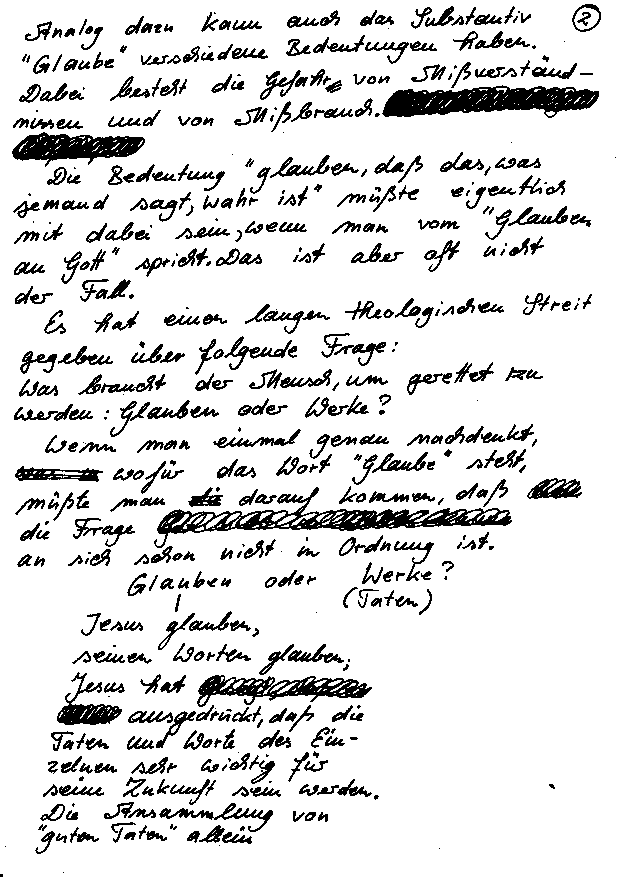 Analog dazu kann auch das Substantiv ②
"Glaube" verschiedene Bedeutungen haben.
Dabei besteht die Gefahr von Mißverständ-
nissen und von Mißbrauch.
Die Bedeutung "glauben, daß das, was
jemand sagt, wahr ist" müßte eigentlich
mit dabei sein, wenn man vom "Glauben
an Gott" spricht. Das ist aber oft nicht
der Fall.
Es hat einen langen theologischen Streit
gegeben über folgende Frage:
Was braucht der Mensch, um gerettet zu
werden: Glauben oder Werke?
Wenn man einmal genau nachdenkt,
wofür das Wort "Glaube" steht,
müßte man darauf kommen, daß
die Frage
an sich schon nicht in Ordnung ist.
Glauben oder Werke?
(Taten)
Jesus glauben,
seinen Worten glauben;
Jesus hat
ausgedrückt, daß die
Taten und Worte des Ein-
zelnen sehr wichtig für
seine Zukunft sein werden.
Die Ansammlung von
"guten Taten" allein